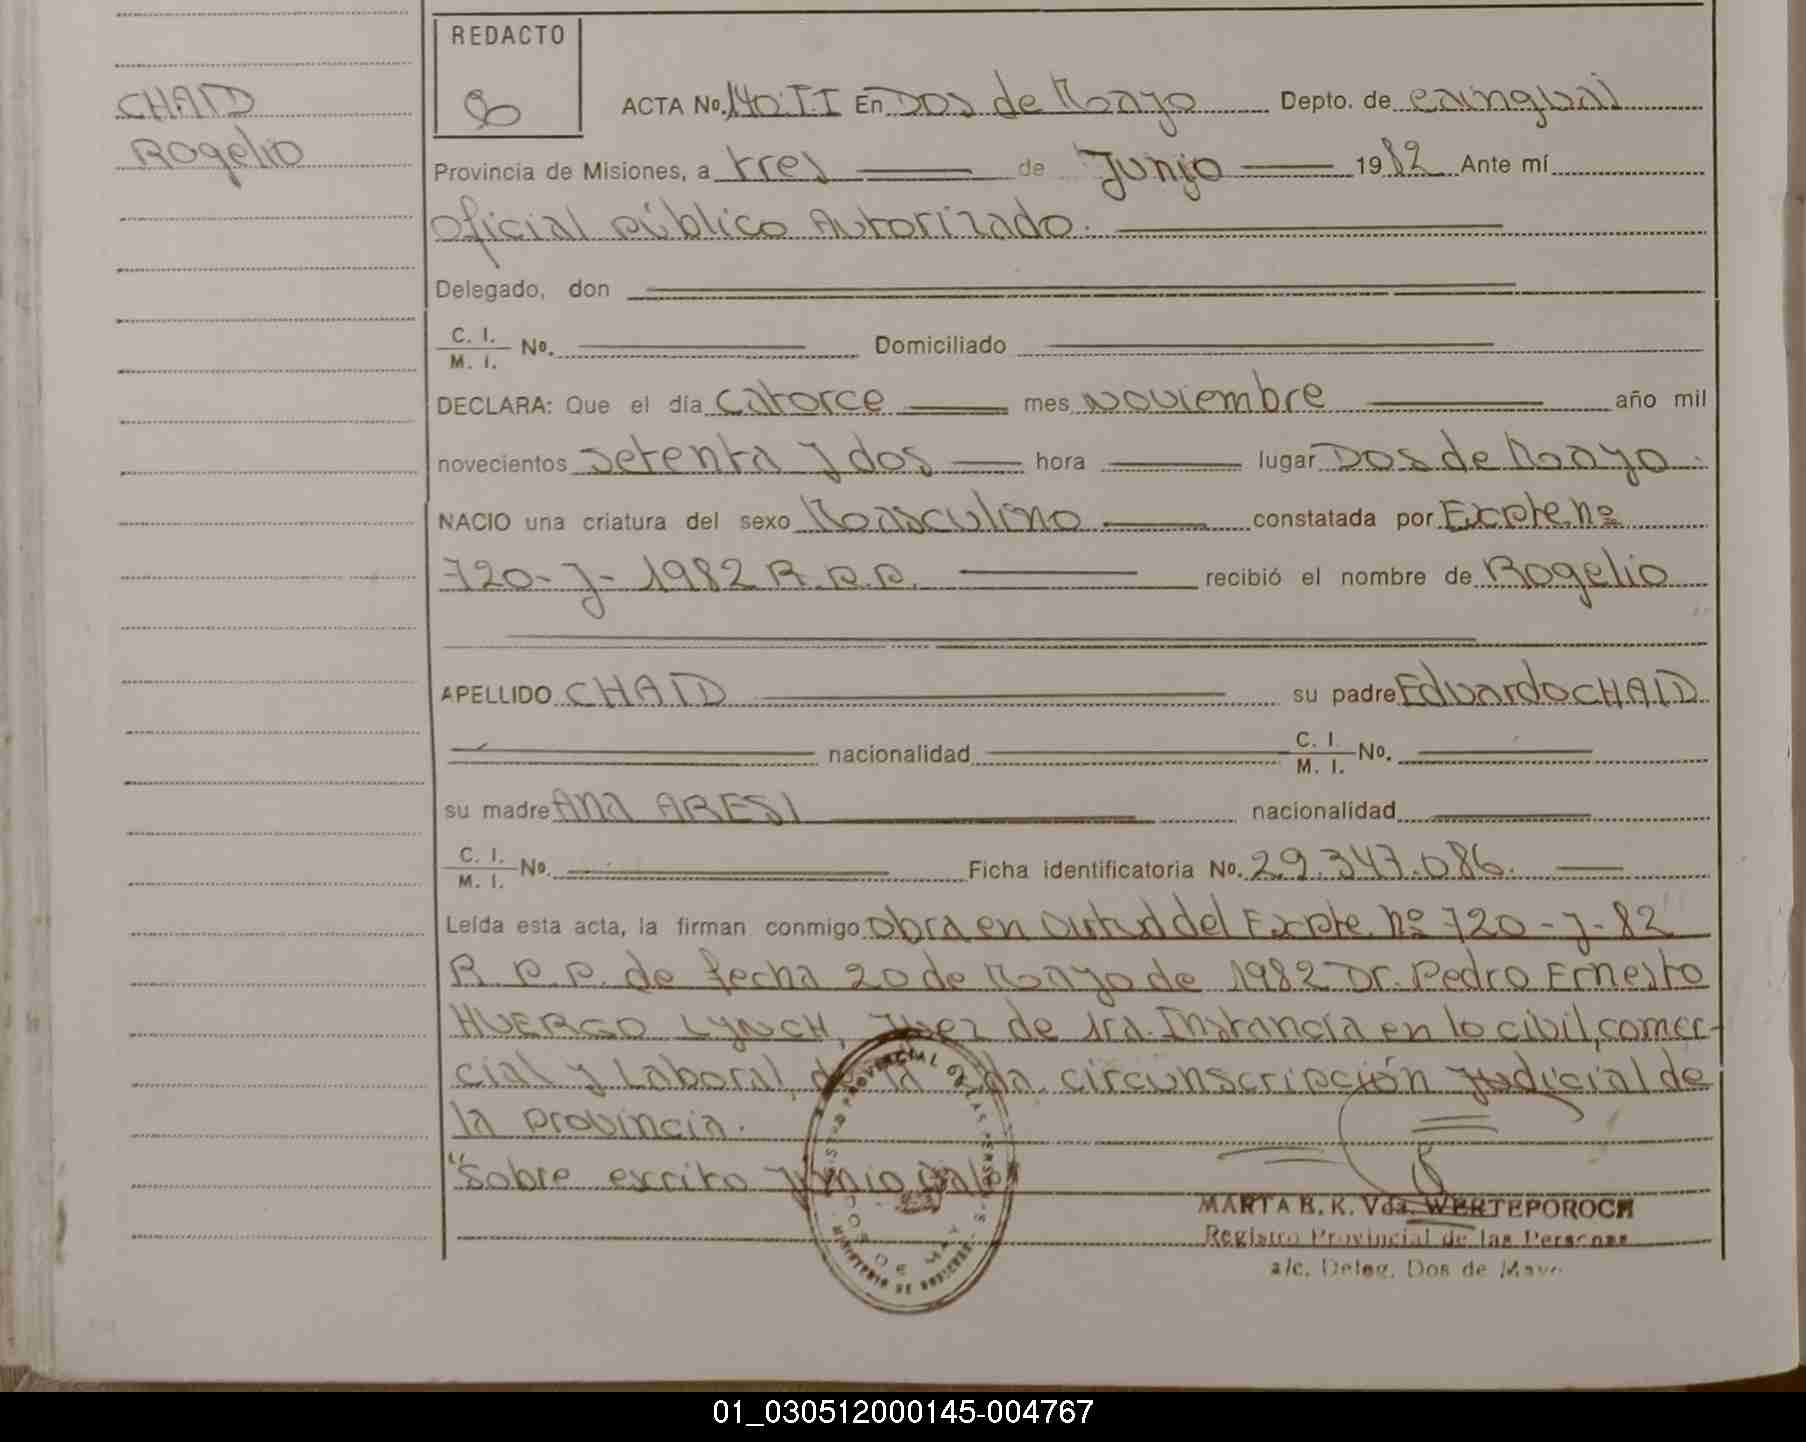 REDACTO
CHAID
Rogelio
ACTA No. 140 II En Dos de Mayo Depto. de Cainguás
Provincia de Misiones, a tres de Junio 1982 Ante mí
Oficial Público Autorizado.
Delegado, don
C. I.
M. I. No. Domiciliado
DECLARA: Que el día catorce mes noviembre año mil
novecientos setenta y dos hora lugar Dos de Mayo
NACIO una criatura del sexo Masculino constatada por Expte. nº
720-J-1982 R.P.P. recibió el nombre de Rogelio
APELLIDO CHAID su padre Eduardo CHAID
nacionalidad C. I.
M. I. No.
su madre Ana ARESI nacionalidad
C. I.
M. I. No. Ficha identificatoria No. 29.347.086.
Leída esta acta, la firman conmigo obra en virtud del Expte. nº 720-J-82
R.P.P. de fecha 20 de Mayo de 1982 Dr. Pedro Ernesto
HUERGO LYNCH, Juez de 1ra. Instancia en lo civil, comer-
cial y Laboral, de la 2da. circunscripción Judicial de
la provincia.
"Sobre escrito Junio Vale
REGISTRO PROVINCIAL DE LAS PERSONAS
DOS DE MAYO
MINISTERIO DE GOBIERNO
MARTA B. K. Vda. WERTEPOROCH
Registro Provincial de las Personas
a/c. Deleg. Dos de Mayo
01_030512000145-004767